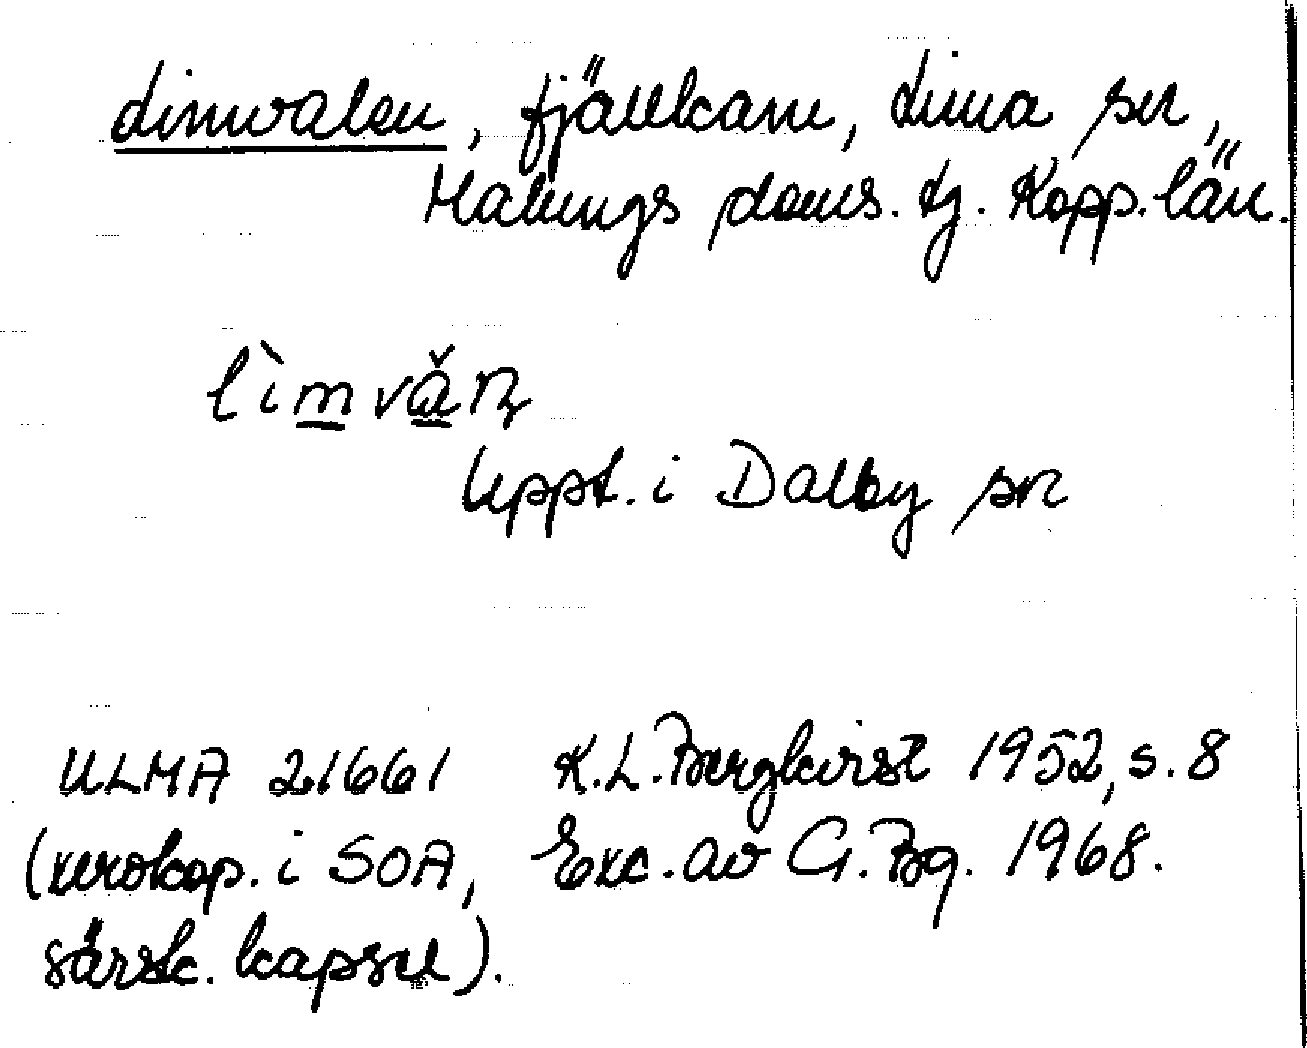 Limvalen, fjällkam, Lima sn,
Malungs doms. tg. Kopp. län.
lìmvå̌ṇ
Uppt. i Dalby sn
ULMA 21661 K.L. Bergkvist 1952, s. 8
(xerokop. i SOA, Exc. av G. Bg. 1968.
särsk. kapsel).